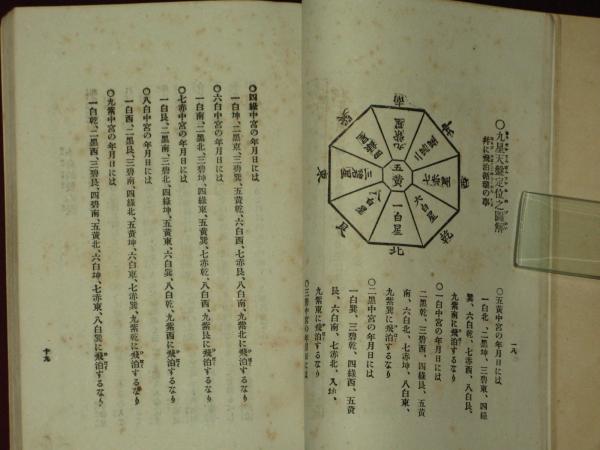 〇九星天盤定位之圖解
幷に飛泊循環の事
南
坤
西
乾
北
艮
東
巽
九紫星
二黑星
七赤星
六白星
一白星
八白星
三碧星
四綠星
五黄
一八
〇五黄中宮の年月日には
一白北、二黑坤、三碧東、四綠
巽、六白乾、七赤西、八白艮、
九紫南に飛泊するなり
〇一白中宮の年月日には
二黑乾、三碧西、四綠艮、五黄
南、六白北、七赤坤、八白東、
九紫巽に飛泊するなり
〇二黑中宮の年月日には
一白巽、三碧乾、四綠西、五黄
艮、六白南、七赤北、八白坤、
九紫東に飛泊するなり
〇三碧中宮の年月日には
〇四綠中宮の年月日には
一白坤、二黑東、三碧巽、五黄乾、六白西、七赤艮、八白南、九紫北に飛泊するなり
〇六白中宮の年月日には
一白南、二黑北、三碧坤、四綠東、五黄巽、七赤乾、八白西、九紫艮に飛泊するなり
〇七赤中宮の年月日には
一白艮、二黑南、三碧北、四綠坤、五黄東、六白巽、八白乾、九紫西に飛泊するなり
〇八白中宮の年月日には
一白西、二黑艮、三碧南、四綠北、五黄坤、六白東、七赤巽、九紫乾に飛泊するなり
〇九紫中宮の年月日には
一白乾、二黑西、三碧艮、四綠南、五黄北、六白坤、七赤東、八白巽に飛泊するなり
十九